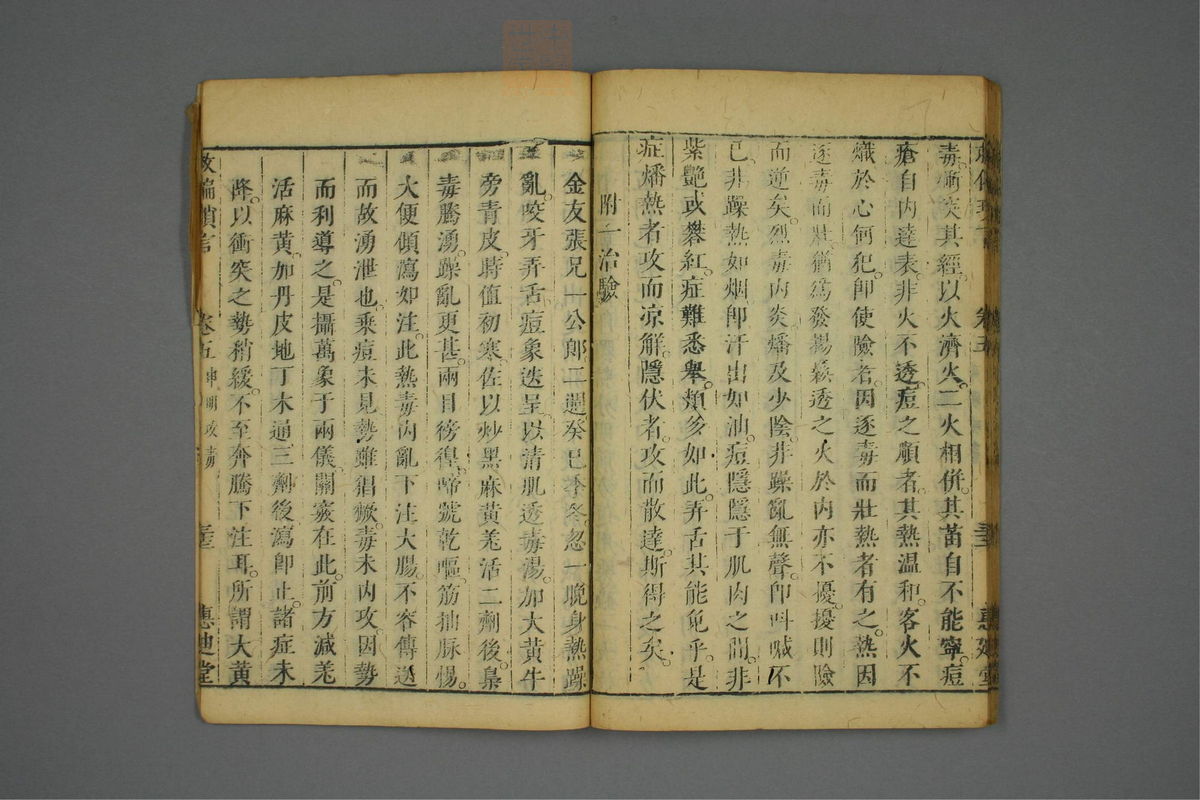 毒。衝突其經。以火濟火。二火相併。其蓄自不能寧。痘
瘡自內達表。非火不透。痘之順者。其熱溫和。客火不
熾於心何犯。卽使險者。因逐毒而壯熱者有之。熱因
逐毒而壯。猶爲發揚蒸透之火。於內亦不擾。擾則險
而逆矣。烈毒內炎。燔及少陰。非躁亂無聲。卽叫喊不
已。非躁熱如烟。卽汗出如油。痘隱隱于肌肉之間。非
紫艷或礬紅。症難悉舉。類多如此。弄舌其能免乎。是
症燔熱者。攻而凉解。隱伏者。攻而散達。斯得之矣。
附一治驗
金友張兄一公郎二週。癸巳季冬。忽一晚身熱躁
亂。咬牙弄舌。痘象迭呈。以清肌透毒湯。加大黃牛
旁青皮。時值初寒。佐以炒黑麻黃羌活二劑後。梟
毒騰湧。躁亂更甚。兩目徬徨。啼號乾嘔。筋抽脉惕。
大便傾瀉如注。此熱毒內亂。下注大腸。不容傳送
而故湧泄也。乘痘未見。勢雖猖獗。毒未內攻。因勢
而利導之。是攝萬象于兩儀。關竅在此。前方減羌
活麻黃。加丹皮地丁木通。三劑後瀉卽止。諸症未
降。以衝突之勢稍緩。不至奔騰下注耳。所謂大黃
救偏瑣言 卷五 神明攻毒 三 惠迪堂